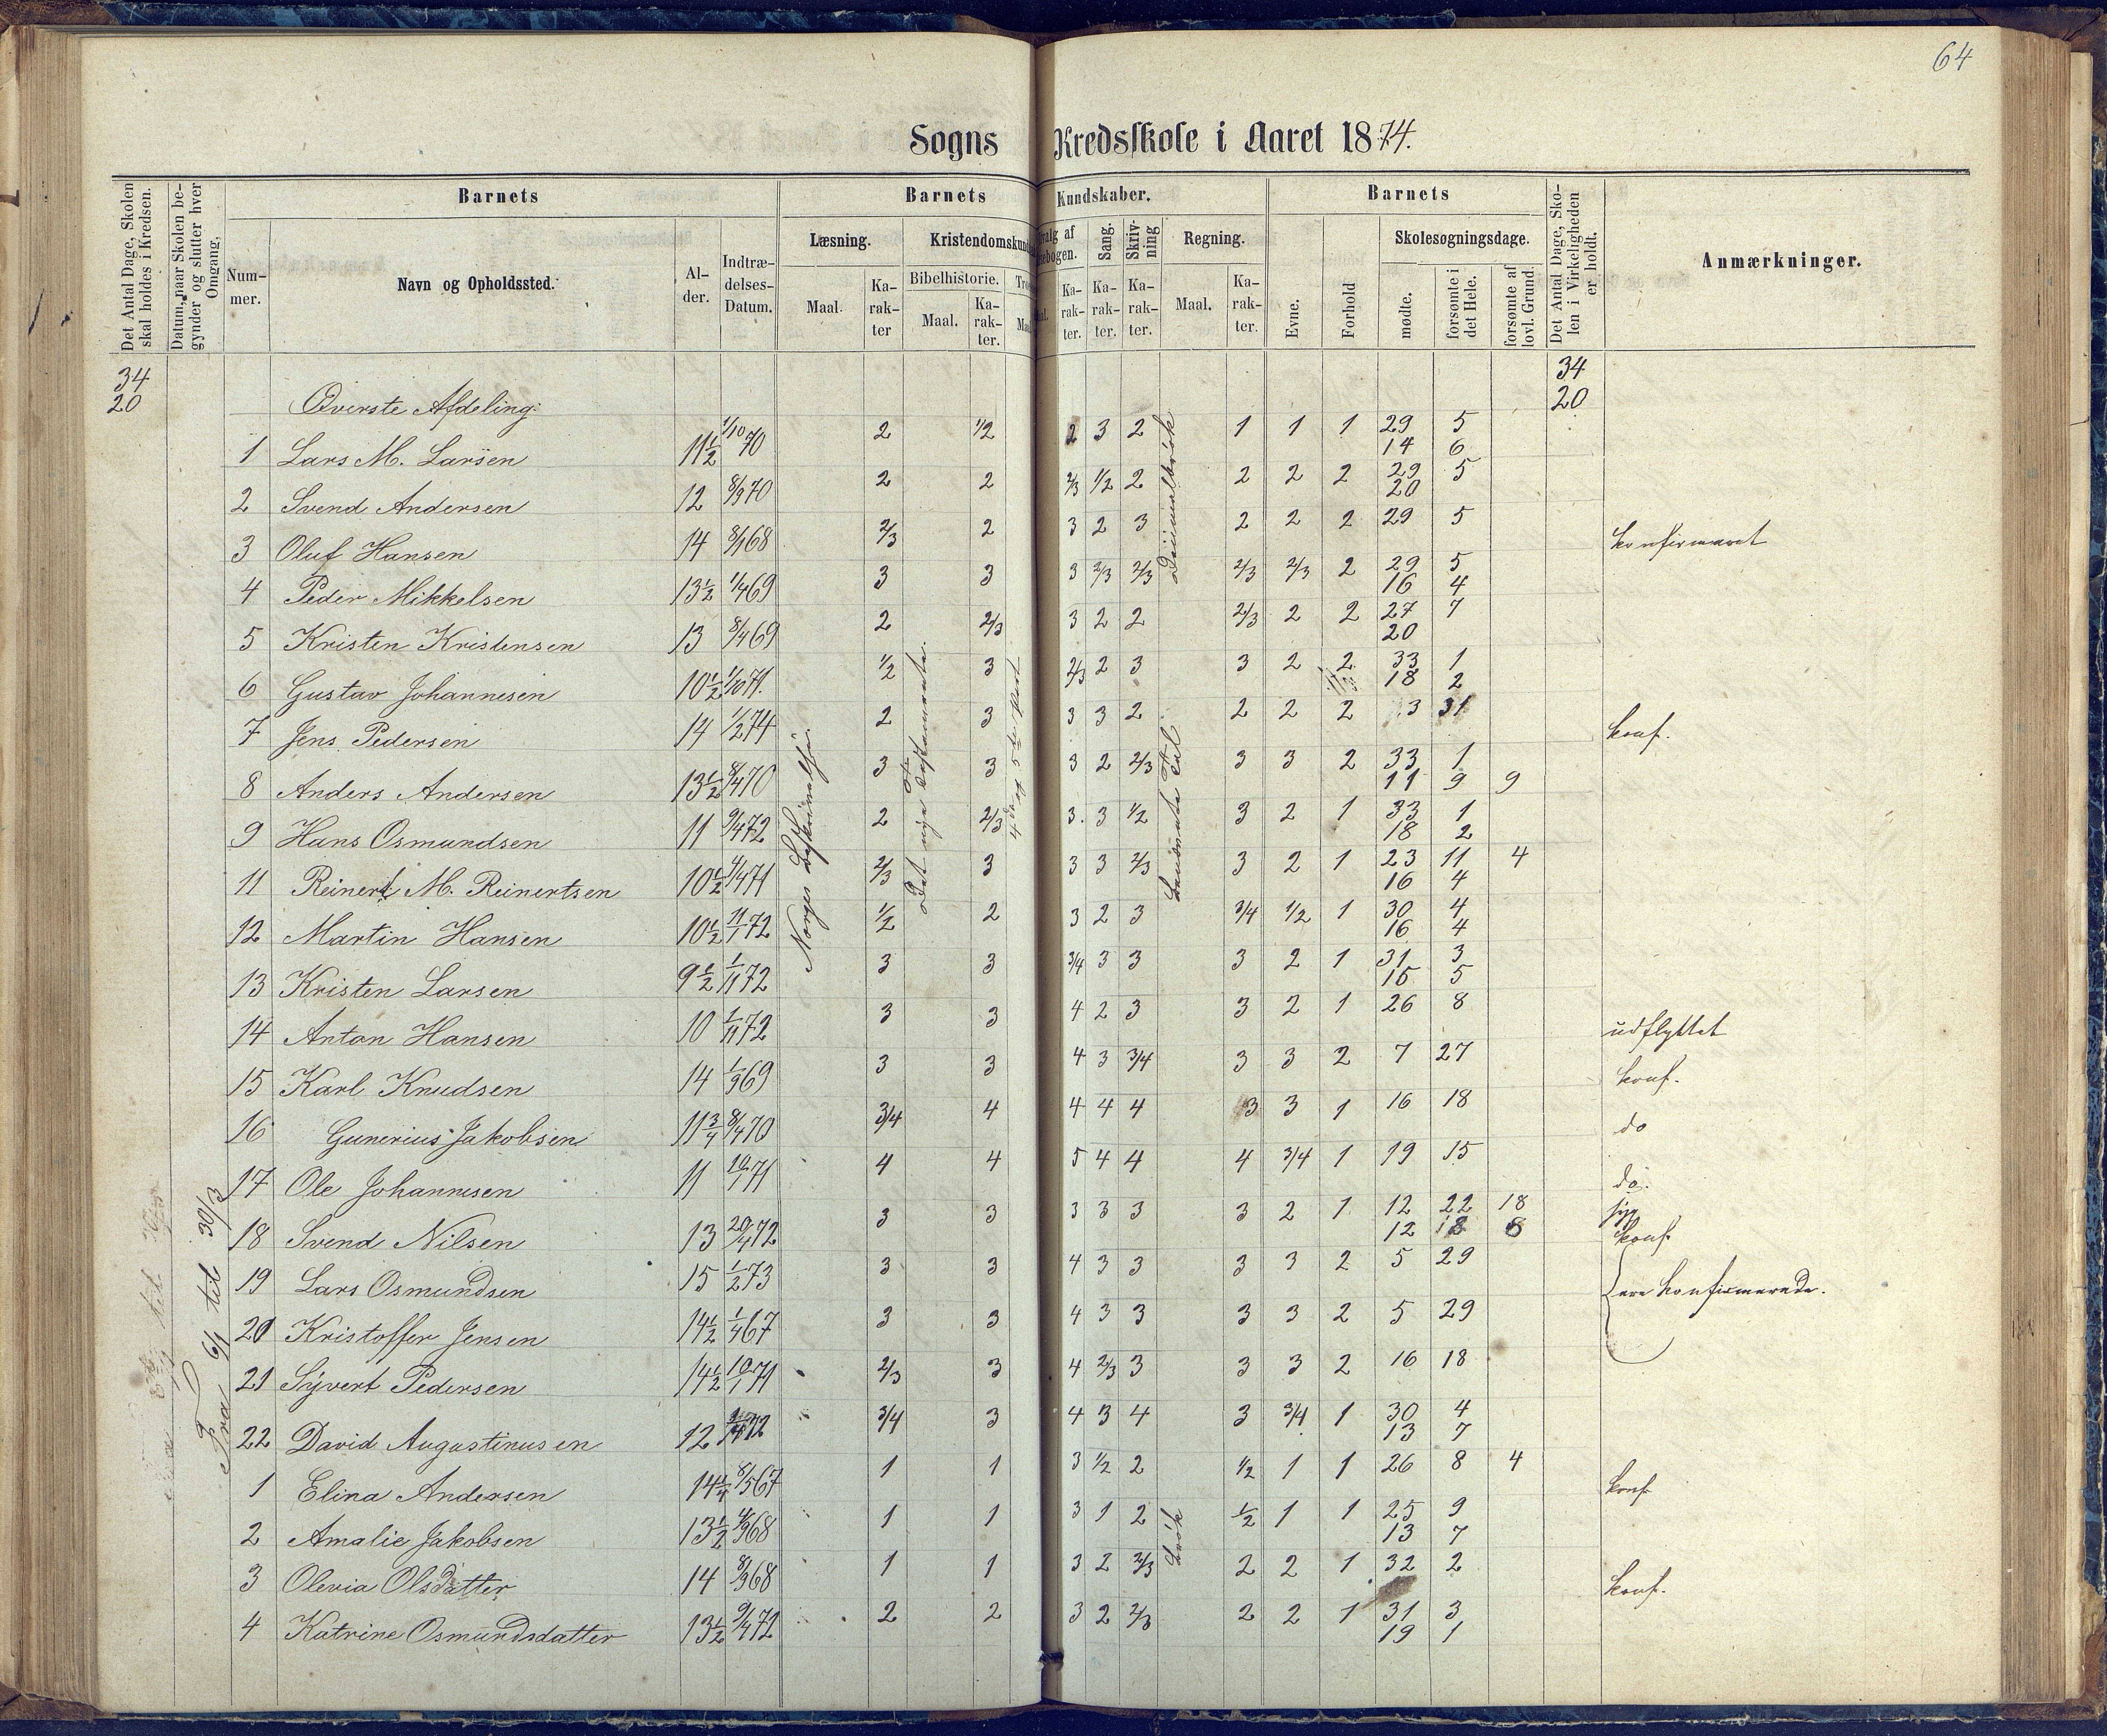 64
Sogns Kredsskole i Aaret 1874.
Det Antal Dage, Skolen skal holdes i Kredsen.
Datum, naar Skolen begynder og slutter hver Omgang.
Barnets
Nummer.
Navn og Opholdssted.
Alder.
Indtrædelses-Datum.
Barnets Kundskaber.
Læsning.
Maal.
Karakter
Bibelhistorie.
Maal.
Karakter.
Sang.
Skrivning
Karakter.
Karakter.
Karakter.
Regning.
Maal.
Karakter.
Barnets
Evne.
Forhold
Skolesøgningsdage.
mødte.
forsømte i det Hele.
forsømte af lovl. Grund.
Det Antal Dage, Skolen i Virkeligheden er holdt.
Anmærkninger.
34 34
20 Øverste Afdeling: 20
1 Lars M. Larsen 11½ 1/10 70 2 1/2 2 3 2 1 1 1 29 5
14 6
2 Svend Andersen 12 8/9 70 2 2 2/3 1/2 2 2 2 2 29 5
20
3 Oluf Hansen 14 8/1 68 2/3 2 3 2 3 2 2 2 29 5 konfirmeret
4 Peder Mikkelsen 13½ 1/4 69 3 3 3 2/3 2/3 2/3 2/3 2 29 5
16 4
5 Kristen Kristensen 13 8/4 69 2 2/3 3 2 2 2/3 2 2 27 7
20
6 Gustav Johannesen 10½ 1/10 71. 1/2 3 2/3 2 3 3 2 2 33 1
18 2
7 Jens Pedersen 14 1/2 74 2 3 3 3 2 2 2 2 3 31 konf.
8 Anders Andersen 13½ 8/4 70 3 3 3 2 2/3 3 3 2 33 1
11 9 9
9 Hans Osmundsen 11 9/4 72 2 2/3 3 3 1/2 3 2 1 33 1
18 2
11 Reinert M. Reinertsen 10½ 4/4 71 2/3 3 3 3 2/3 3 2 1 23 11 4
16 4
12 Martin Hansen 10½ 11/1 72 1/2 2 3 2 3 3/4 1/2 1 30 4
16 4
13 Kristen Larsen 9½ 1/11 72 3 3 3/4 3 3 3 2 1 31 3
15 5
14 Anton Hansen 10 1/11 72 3 3 4 2 3 3 2 1 26 8 udflyttet
15 Karl Knudsen 14 1/9 69 3 3 4 3 3/4 3 3 2 7 27 konf.
16 Gunerius Jakobsen 11¾ 8/4 70 3/4 4 4 4 4 3 3 1 16 18 do
17 Ole Johannesen 11 10/1 71 4 4 5 4 4 4 3/4 1 19 15 do.
18 Svend Nilsen 13 20/4 72 3 3 3 3 3 3 2 1 12 22 18 syg
12 18 8 konf.
19 Lars Osmundsen 15 1/2 73 3 3 4 3 3 3 3 2 5 29 ere konfirmerede.
20 Kristoffer Jensen 14½ 1/4 67 3 3 4 3 3 3 3 2 5 29
21 Syvert Pedersen 14½ 10/1 71 2/3 3 4 2/3 3 3 3 2 16 18
22 David Augustinusen 12 72 3/4 3 4 3 4 3 3/4 1 30 4
13 7
1 Elina Andersen 14¼ 8/5 67 1 1 3 1/2 2 1/2 1 1 26 8 4 konf
2 Amalie Jakobsen 13½ 68 1 1 3 1 2 1/2 1 1 25 9
13 7
3 Olevia Olsdatter 14 8/9 68 1 1 3 2 2/3 2 2 1 32 2 konf.
4 Katrine Osmundsdatter 13½ 9/4 72 2 2 3 2 2/3 2 2 1 31 3
19 1
Fra 6/1 til 30/3
Norges Beskrivelse.
Det nye Testamente.
4de og 5te Part
Decimalbrøk
Benævnte Tal
Brøk